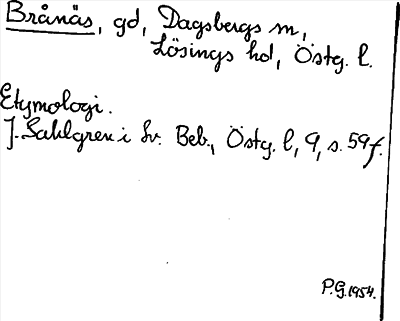 Brånäs, gd, Dagsbergs sn,
Lösings hd, Östg. l.
Etymologi.
J. Sahlgren i Sv. Beb., Östg. l, 9, s. 59f.
P.G. 1954.